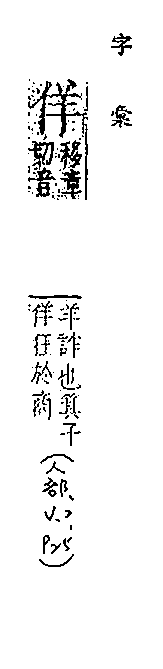 字彙
佯
移章
切音
羊詐也箕子
佯狂於商
(人部、V.2, P25)